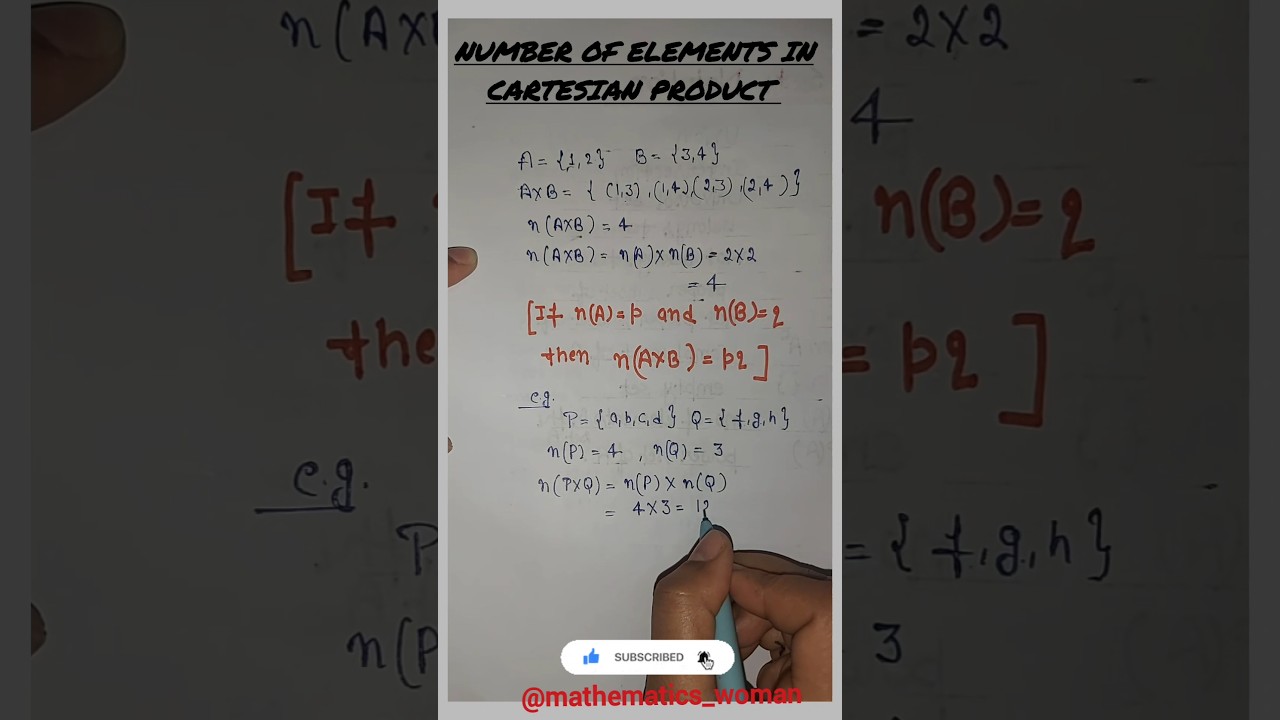 NUMBER OF ELEMENTS IN
CARTESIAN PRODUCT
A = {1,2} B = {3,4}
A×B = { (1,3) ,(1,4),(2,3) ,(2,4 ) }
n(A×B) = 4
n(A×B) = n(A)×n(B) = 2×2
= 4
[If n(A)=p and n(B)=q
then n(A×B) = pq ]
e.g.
P = {a,b,c,d} Q = {f,g,h}
n(P) = 4 , n(Q) = 3
n(P×Q) = n(P) × n(Q)
= 4×3 = 12
SUBSCRIBED
@mathematics_woman